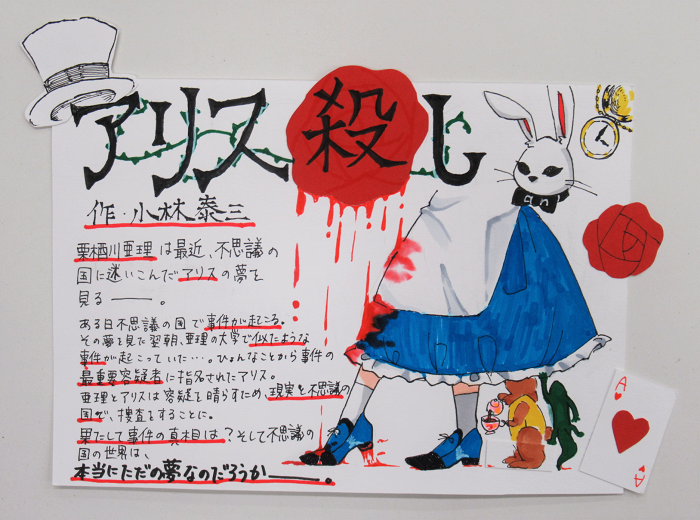 アリス殺し
作・小林泰三
栗栖川亜理は最近、不思議の
国に迷いこんだアリスの夢を
見る――。
ある日不思議の国で事件が起こる。
その夢を見た翌朝、亜理の大学で似たような
事件が起こっていた…。ひょんなことから事件の
最重要容疑者に指名されたアリス。
亜理とアリスは容疑を晴らすため、現実と不思議の
国で、捜査をすることに。
果たして事件の真相は?そして不思議の
国の世界は、
本当にただの夢なのだろうか――。
A
A